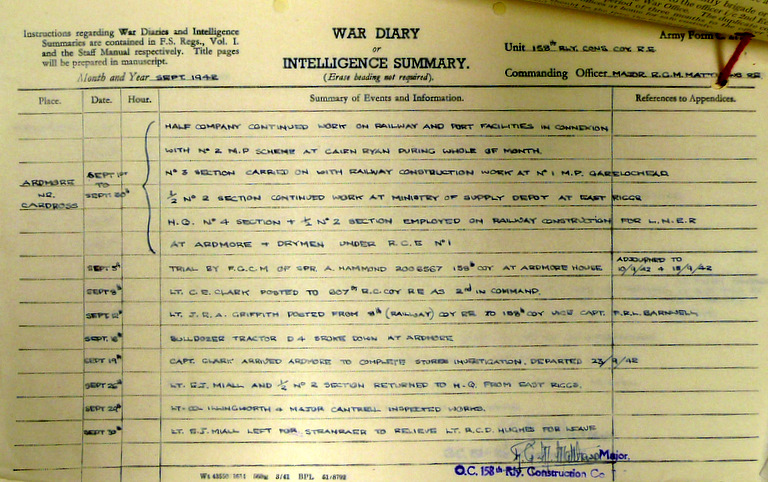 Instructions regarding War Diaries and Intelligence
Summaries are contained in F.S. Regs., Vol. I.
and the Staff Manual respectively. Title pages
will be prepared in manuscript.
Month and Year SEPT. 1942
WAR DIARY
or
INTELLIGENCE SUMMARY.
(Erase heading not required).
Army Form
Unit 158th RLY. CONS. COY R.E
Commanding Officer MAJOR R.G.M.
Place. Date. Hour. Summary of Events and Information. References to Appendices.
ARDMORE
NR.
CARDROSS
SEPT 1st
TO
SEPT. 30th
HALF COMPANY CONTINUED WORK ON RAILWAY AND PORT FACILITIES IN CONNEXION
WITH No 2 M.P SCHEME AT CAIRN RYAN DURING WHOLE OF MONTH.
No 3 SECTION CARRIED ON WITH RAILWAY CONSTRUCTION WORK AT No 1 M.P. GARELOCHEAD
½ No 2 SECTION CONTINUED WORK AT MINISTRY OF SUPPLY DEPOT AT EAST RIGGS
H.Q. No 4 SECTION + ½ No 2 SECTION EMPLOYED ON RAILWAY CONSTRUCTION FOR L.N.E.R
AT ARDMORE + DRYMEN UNDER R.C.E No 1
SEPT 5th TRIAL BY F.G.C.M OF SPR. A. HAMMOND 2006567 158th COY AT ARDMORE HOUSE ADJOURNED TO
10/9/42 + 18/9/42
SEPT 8th LT. C.E. CLARK POSTED TO 607th R.C. COY RE AS 2nd IN COMMAND.
SEPT LT. J.R.A. GRIFFITH POSTED FROM (RAILWAY) COY RE TO 158th COY VICE CAPT. F.R.L. BARNWELL
SEPT. BULLDOZER TRACTOR D4 BROKE DOWN AT ARDMORE
SEPT 19th CAPT. CLARK ARRIVED ARDMORE TO COMPLETE STORES INVESTIGATION. DEPARTED 23/9/42
SEPT 26th LT. E.J. MIALL AND ½ No 2 SECTION RETURNED TO H.Q. FROM EAST RIGGS.
SEPT 29th LT-COL ILLINGWORTH + MAJOR CANTRELL INSPECTED WORKS.
SEPT 30th LT. E.J. MIALL LEFT FOR STRANRAER TO RELIEVE LT. R.C.D. HUGHES FOR LEAVE
Major,
O.C. 158th Rly. Construction Co